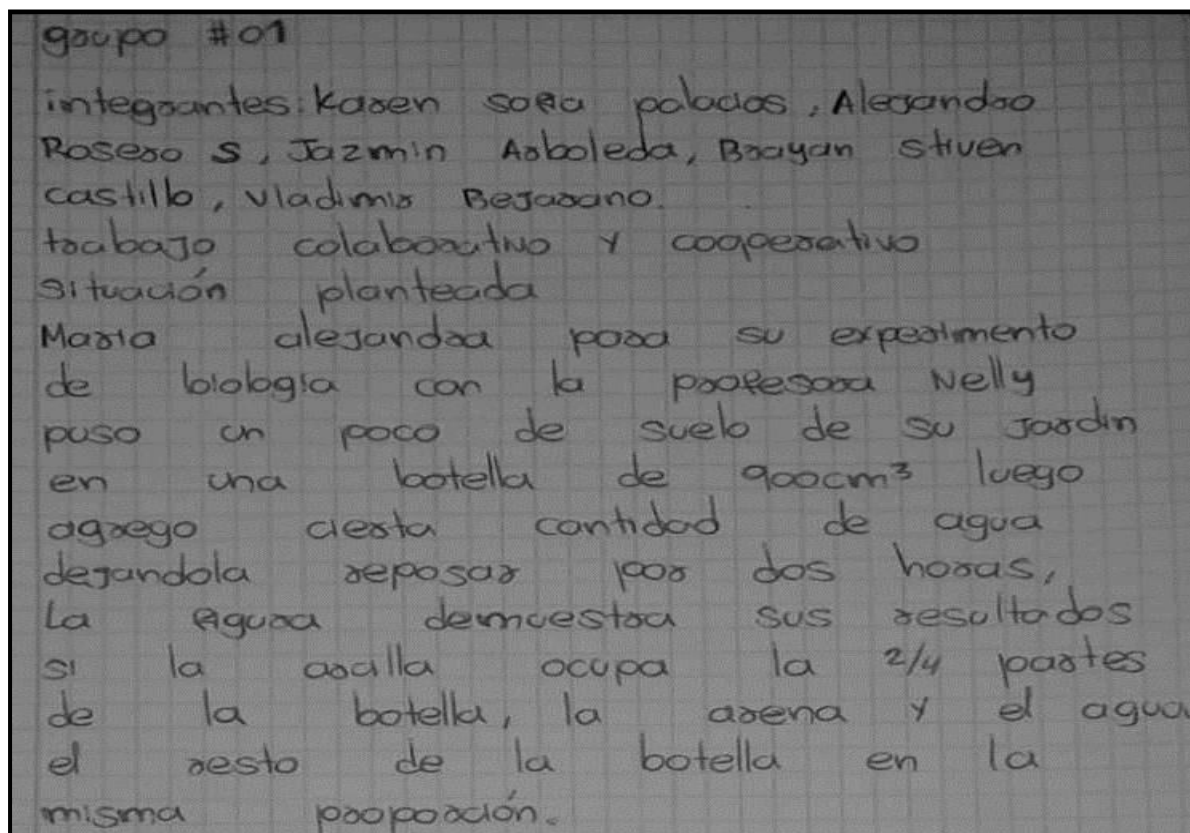 grupo #01
integrantes: Karen sofia palacios, Alejandro
Rosero S, Jazmin Arboleda, Brayan stiven
castillo, vladimir Bejarano.
trabajo colaborativo y cooperativo
situación planteada
Maria alejandra para su experimento
de biologia con la profesora Nelly
puso un poco de suelo de su jardin
en una botella de 900cm³ luego
agrego cierta cantidad de agua
dejandola reposar por dos horas,
La figura demuestra sus resultados
si la arcilla ocupa la 2/4 partes
de la botella, la arena y el agua
el resto de la botella en la
misma proporción.